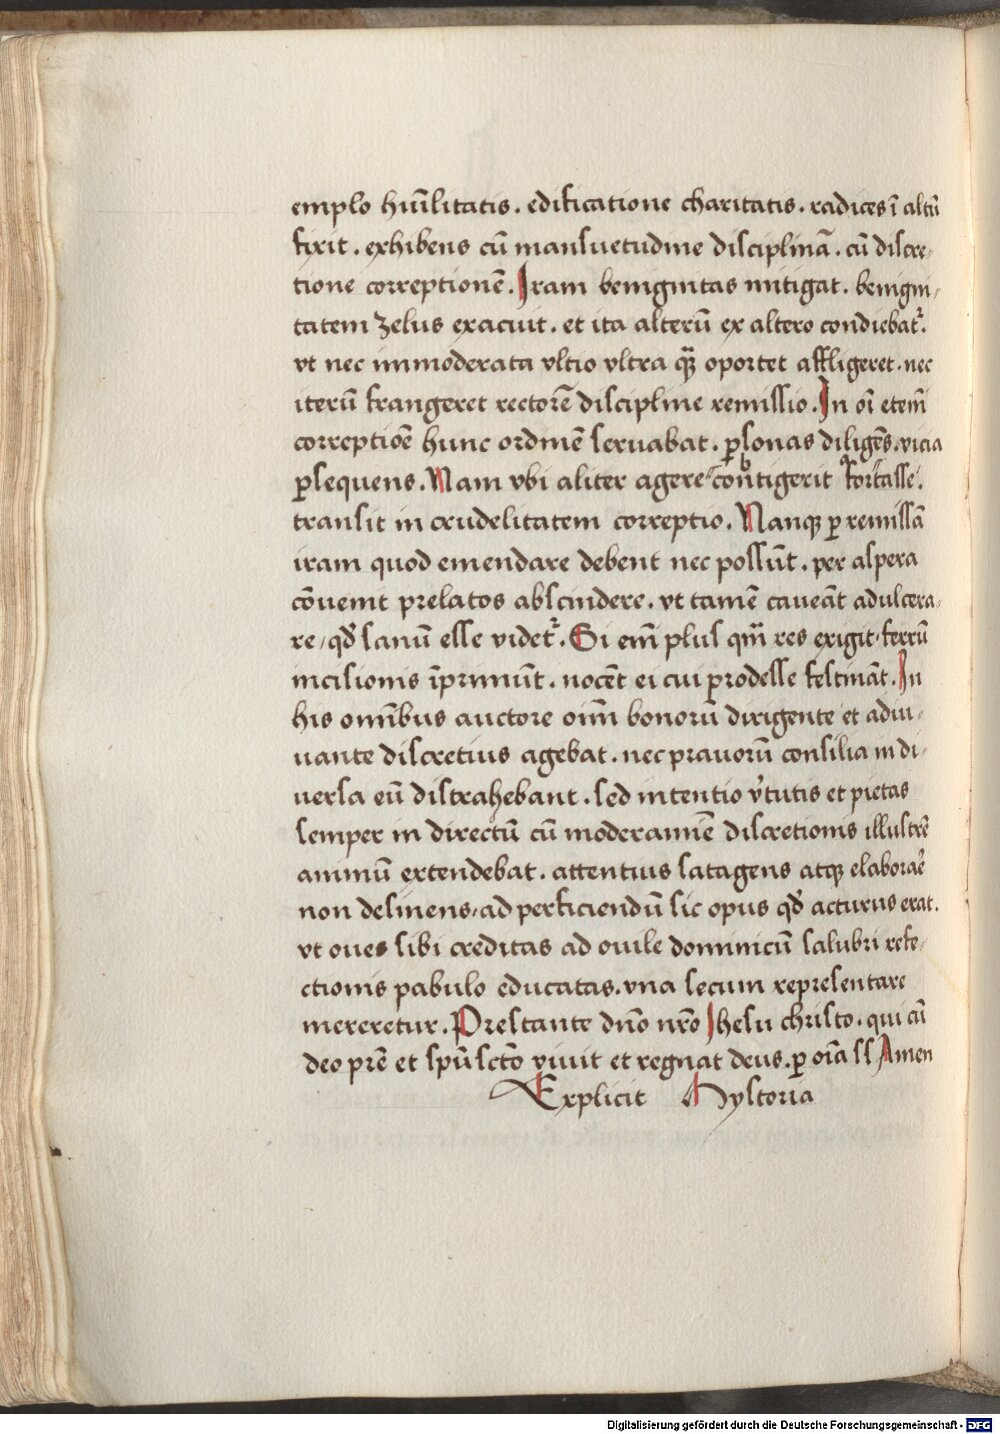 emplo hūilitatis. edificatione charitatis. radices ī altū
fixit. exhibens cū mansuetudine disciplinā. cū discre-
tione correptionē. Iram benignitas mitigat. benigni-
tatem zelus exacuit. et ita alterū ex altero condiebat᷑.
vt nec immoderata vltio vltra qͣ̄ oportet affligeret. nec
iterū frangeret rectorē discipline remissio. In oī etem̄
correptiōe hunc ordinē seruabat. ꝑsonas diligēs. vicia
ꝑsequens. Nam vbi aliter agere contigerit fortasse.
transit in crudelitatem correptio. Nanqꝫ ꝑ remissā
iram quod emendare debent nec possūt. per aspera
cōuenit prelatos abscindere. vt tamē caueāt adulcera-
re, qd̓ sanū esse videt᷑. Si em̄ plus qm̄ res exigit, ferrū
incisionis īprimūt. nocēt ei cui prodesse festināt. In
his omībus auctore oīm bonorū dirigente et adiu-
uante discretius agebat. nec prauorū consilia in di-
uersa eū distrahebant. sed intentio v̓tutis et pietas
semper in directū cū moderamīe discretionis illustrē
animū extendebat. attentius satagens atqꝫ elaborar̄e
non desinens, ad perficiendū sic opus qd̓ acturus erat.
vt oues sibi creditas ad ouile dominicū salubri refe-
ctionis pabulo educatas. vna secum representare
mereretur. Prestante dn̄o nr̄o Ihesu christo. qui cū
deo pr̄e et spū sctō viuit et regnat deus. ꝑ oīa ss Amen
Explicit Hystoria
Digitalisierung gefördert durch die Deutsche Forschungsgemeinschaft - DFG